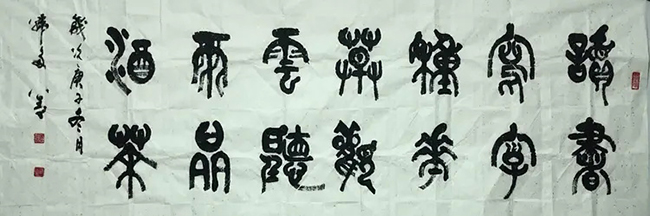 讀書
寫字
種花
草觀
雲聽
雨品
酒茶
歲次庚子冬月